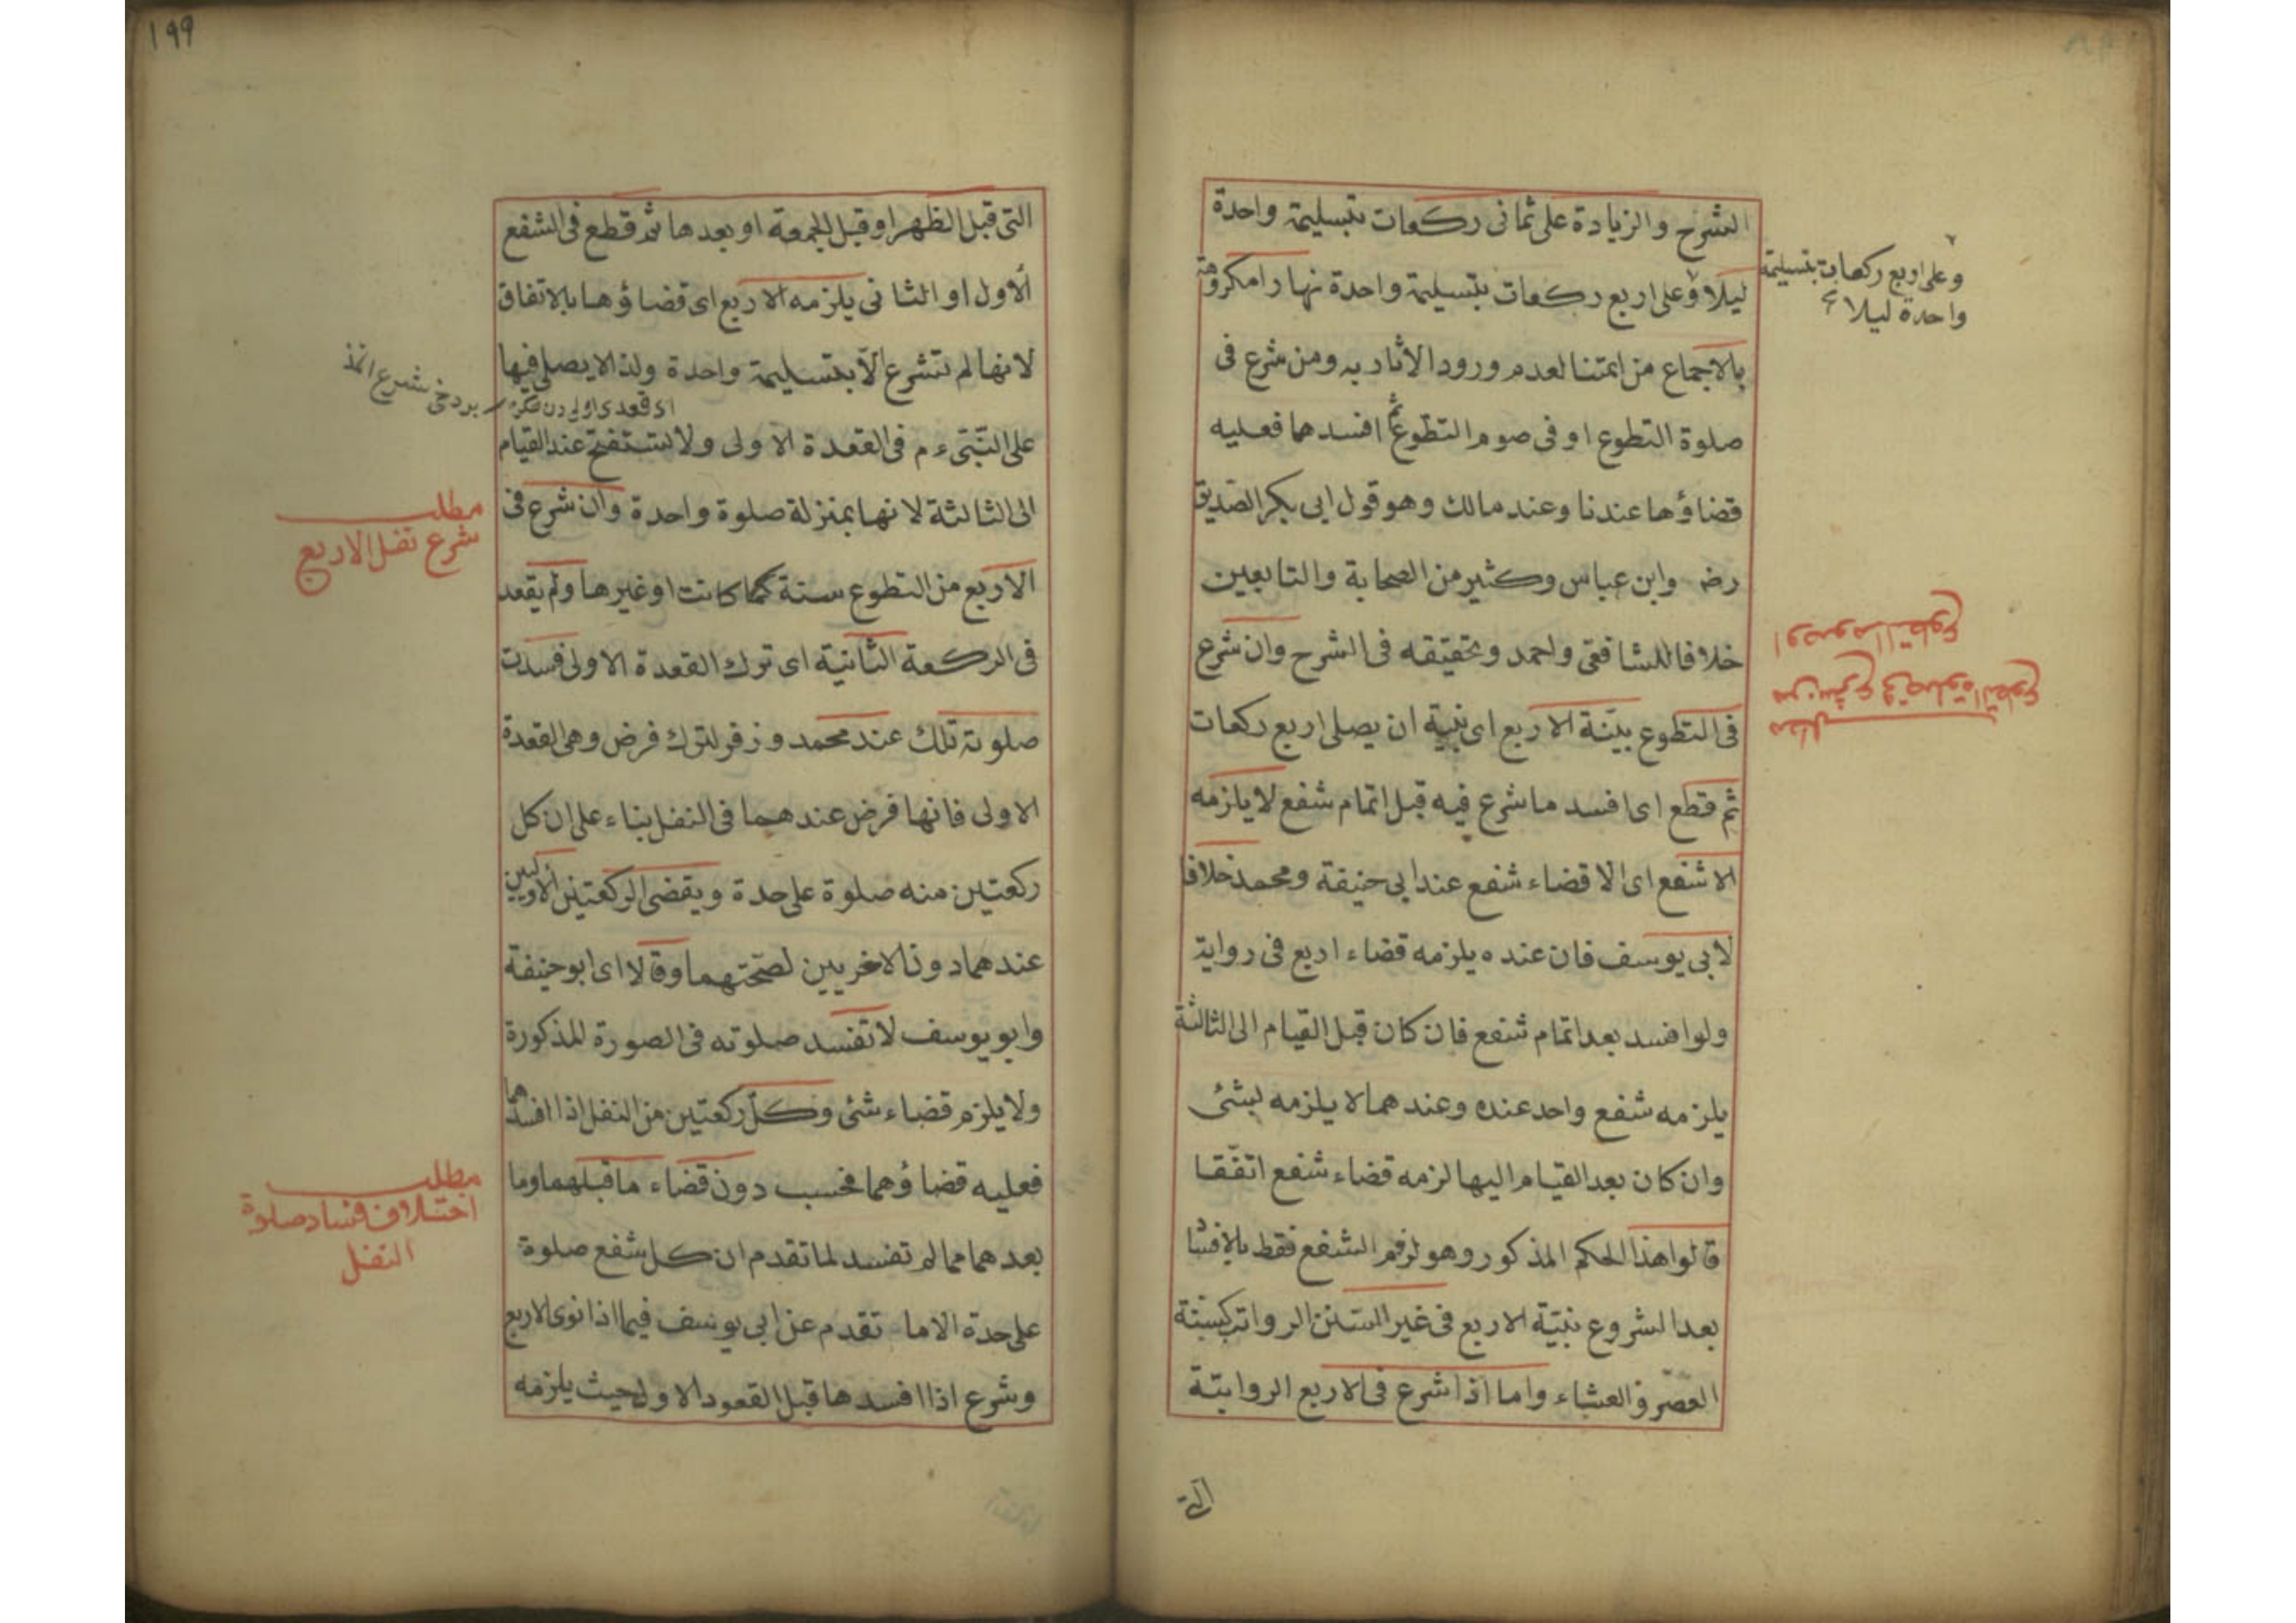 الشرح والزيادة على ثمانى ركعات بتسليمة واحدة
ليلا وعلى اربع ركعات بتسليمة واحدة نهارا مكروهة
وعلى اربع ركعات بتسليمة
واحدة ليلا
بالاجماع من ائمتنا لعدم ورود الاثار به ومن شرع فى
صلوة التطوع او فى صوم التطوع ثم افسدهما فعليه
قضاؤها عندنا وعند مالك وهو قول ابى بكر الصديق
رضه وابن عباس وكثير من الصحابة والتابعين
خلافا للشافعى واحمد وتحقيقه فى الشرح وان شرع
مطلب
من شرع فى صلوة التطوع
او صوم التطوع
فى التطوع بنية الاربع اى بنية ان يصلى اربع ركعات
ثم قطع اى افسد ما شرع فيه قبل اتمام شفع لا يلزمه
الا شفع اى الا قضاء شفع عند ابى حنيفة ومحمد خلافا
لابى يوسف فان عنده يلزمه قضاء اربع فى رواية
ولو افسد بعد اتمام شفع فان كان قبل القيام الى الثالثة
يلزمه شفع واحد عنده وعندهما لا يلزمه شئ
وان كان بعد القيام اليها لزمه قضاء شفع اتفقا
قالوا هذا الحكم المذكور وهو لزوم الشفع فقط بالافساد
بعد الشروع بنية الاربع فى غير السنن الرواتب كسنة
العصر والعشاء واما اذا شرع فى الاربع الرواتبة
التى
١٩٩
التى قبل الظهر او قبل الجمعة او بعدها ثم قطع فى الشفع
الأول او الثانى يلزمه الاربع اى قضاؤها بالاتفاق
لانها لم تشرع الّا بتسليمة واحدة ولذا لا يصلى فيها
على النبىء م فى القعدة الاولى ولا يستفتح عند القيام
الى الثالثة لانها بمنزلة صلوة واحدة وان شرع فى
مطلب
شرع نفل الاربع
الاربع من التطوع سنة كما كانت او غيرها ولم يقعد
فى الركعة الثانية اى ترك القعدة الاولى فسدت
صلوته تلك عند محمد وزفر لترك فرض وهى القعدة
الاولى فانها فرض عندهما فى النفل بناء على ان كل
ركعتين منه صلوة على حدة ويقضى الركعتين الاوليين
عندهما دون الاخريين لصحتهما وقالا اى ابو حنيفة
وابو يوسف لا تفسد صلوته فى الصورة المذكورة
ولا يلزم قضاء شئ وكلّ ركعتين من النفل اذا افسدهما
فعليه قضاؤهما فحسب دون قضاء ما قبلهما وما
مطلب
اختلاف فساد صلوة
النفل
بعدهما مما لم تفسد لما تقدم ان كل شفع صلوة
على حدة الا ما تقدم عن ابى يوسف فيما اذا نوى الاربع
وشرع اذا افسدها قبل القعود الاول حيث يلزمه